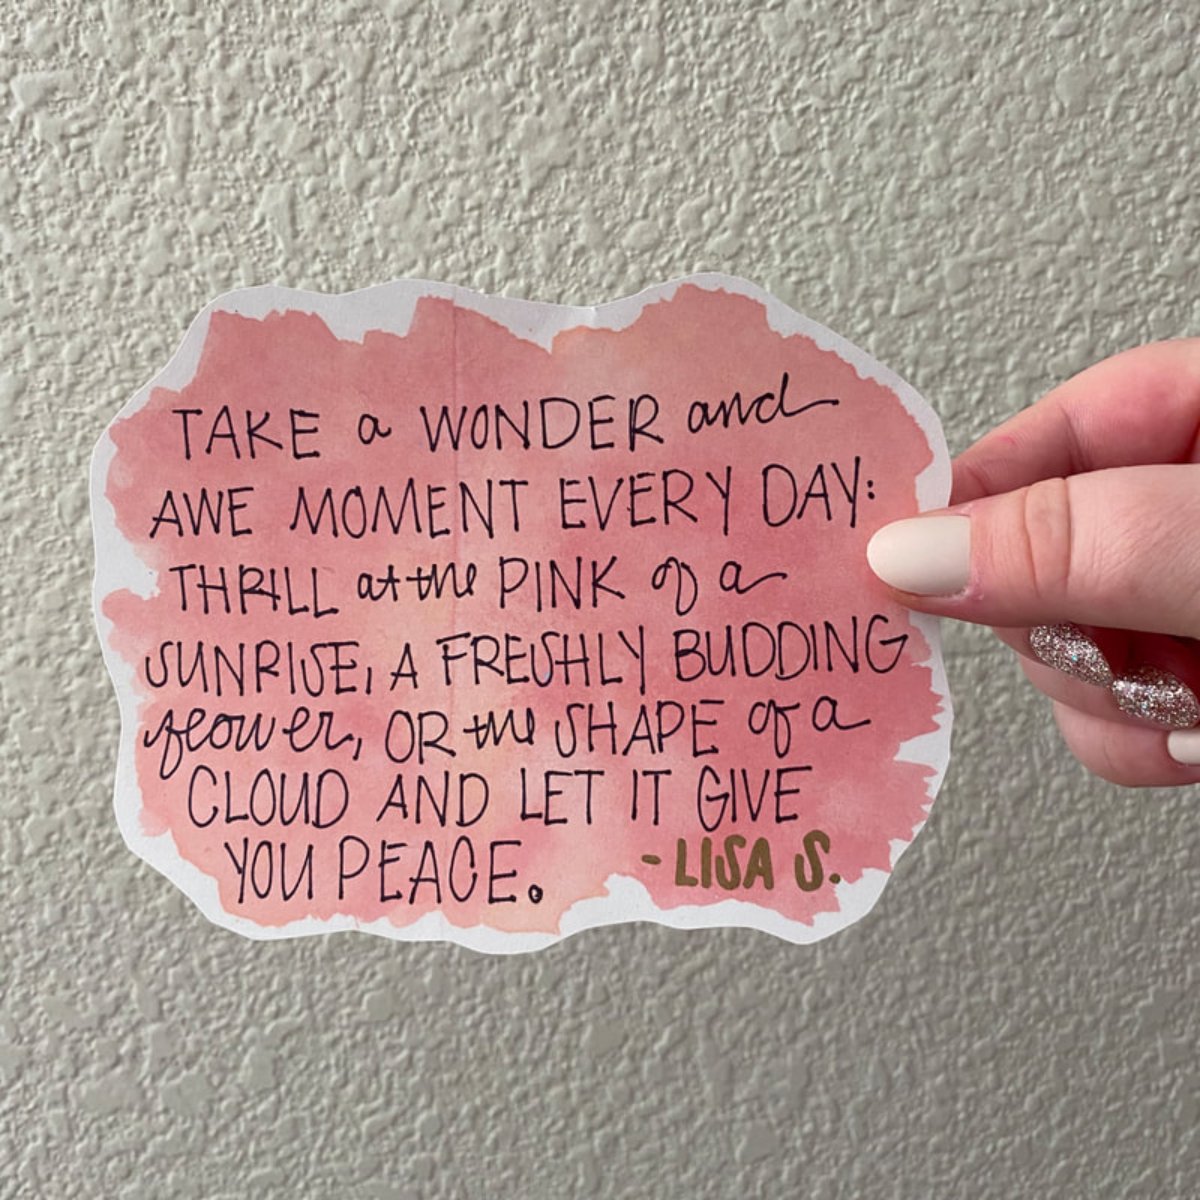 TAKE a WONDER and
AWE MOMENT EVERY DAY:
THRILL at the PINK of a
SUNRISE, A FRESHLY BUDDING
flower, OR the SHAPE of a
CLOUD AND LET IT GIVE
YOU PEACE. - LISA S.